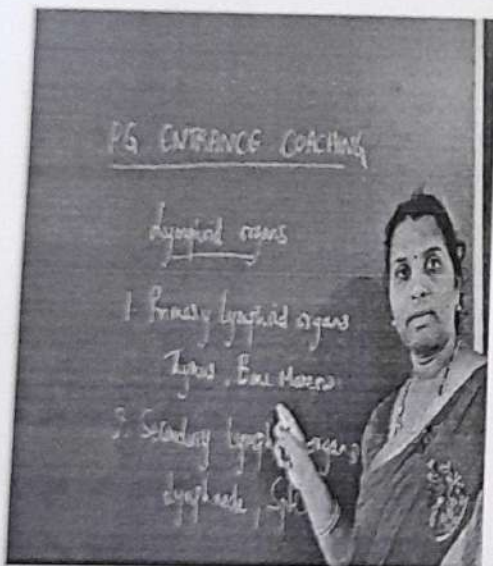 PG ENTRANCE COACHING
Lymphoid organs
1. Primary lymphoid organs
Thymus, Bone Marrow
2. Secondary lymph organs
Lymphnode,